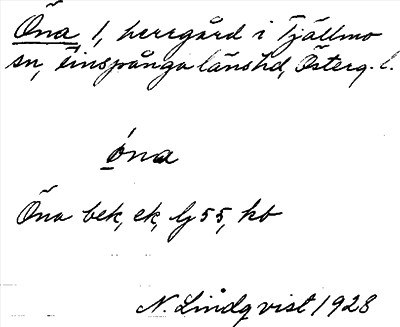 Öna 1, herrgård i Tjällmo
sn, Finspånga länshd, Österg. l.
óna
Öna bek, ek, lj 55, kb
N. Lindqvist 1928